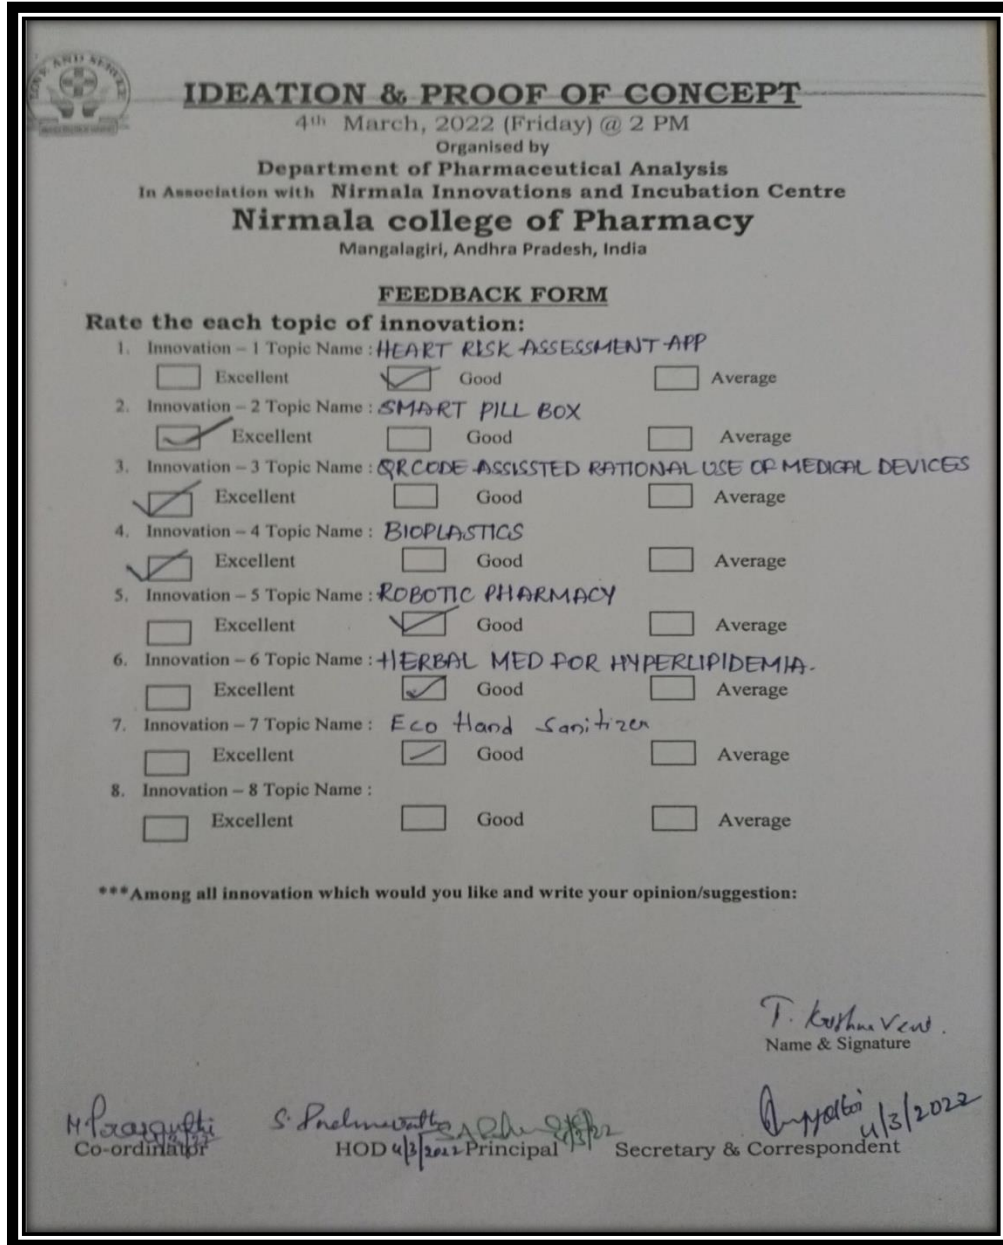 LOVE AND SERVICE
IDEATION & PROOF OF CONCEPT
4th March, 2022 (Friday) @ 2 PM
Organised by
Department of Pharmaceutical Analysis
In Association with Nirmala Innovations and Incubation Centre
Nirmala college of Pharmacy
Mangalagiri, Andhra Pradesh, India
FEEDBACK FORM
Rate the each topic of innovation:
1. Innovation – 1 Topic Name : HEART RISK ASSESSMENT APP
Excellent Good Average
2. Innovation – 2 Topic Name : SMART PILL BOX
Excellent Good Average
3. Innovation – 3 Topic Name : QR CODE ASSISSTED RATIONAL USE OF MEDICAL DEVICES
Excellent Good Average
4. Innovation – 4 Topic Name : BIOPLASTICS
Excellent Good Average
5. Innovation – 5 Topic Name : ROBOTIC PHARMACY
Excellent Good Average
6. Innovation – 6 Topic Name : HERBAL MED FOR HYPERLIPIDEMIA.
Excellent Good Average
7. Innovation – 7 Topic Name : Eco Hand Sanitizer
Excellent Good Average
8. Innovation – 8 Topic Name :
Excellent Good Average
***Among all innovation which would you like and write your opinion/suggestion:
T.
Name & Signature
4/3/2022
Co-ordinator HOD 4/3/2022 Principal Secretary & Correspondent